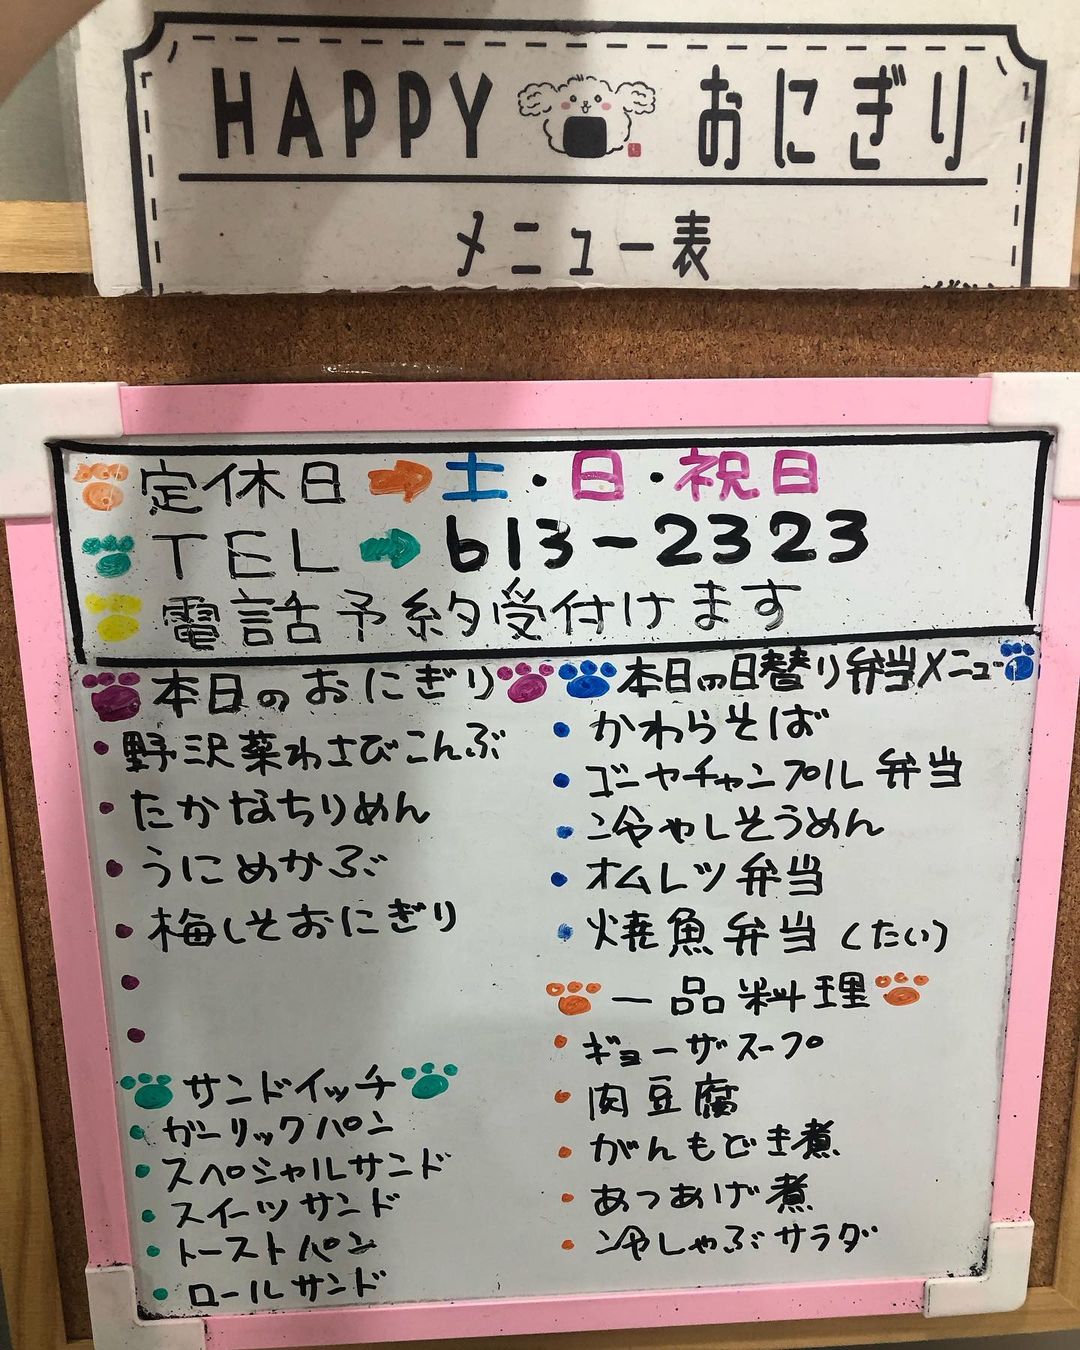 HAPPY おにぎり
メニュー表
定休日 → 土・日・祝日
TEL → 613-2323
電話予約受付けます
本日のおにぎり
・野沢菜わさびこんぶ
・たかなちりめん
・うにめかぶ
・梅しそおにぎり
・
・
サンドイッチ
・ガーリックパン
・スペシャルサンド
・スイーツサンド
・トーストパン
・ロールサンド
本日の日替り弁当メニュー
・かわらそば
・ゴーヤチャンプル弁当
・冷やしそうめん
・オムレツ弁当
・焼魚弁当(たい)
一品料理
・ギョーザスープ
・肉豆腐
・がんもどき煮
・あつあげ煮
・冷しゃぶサラダ